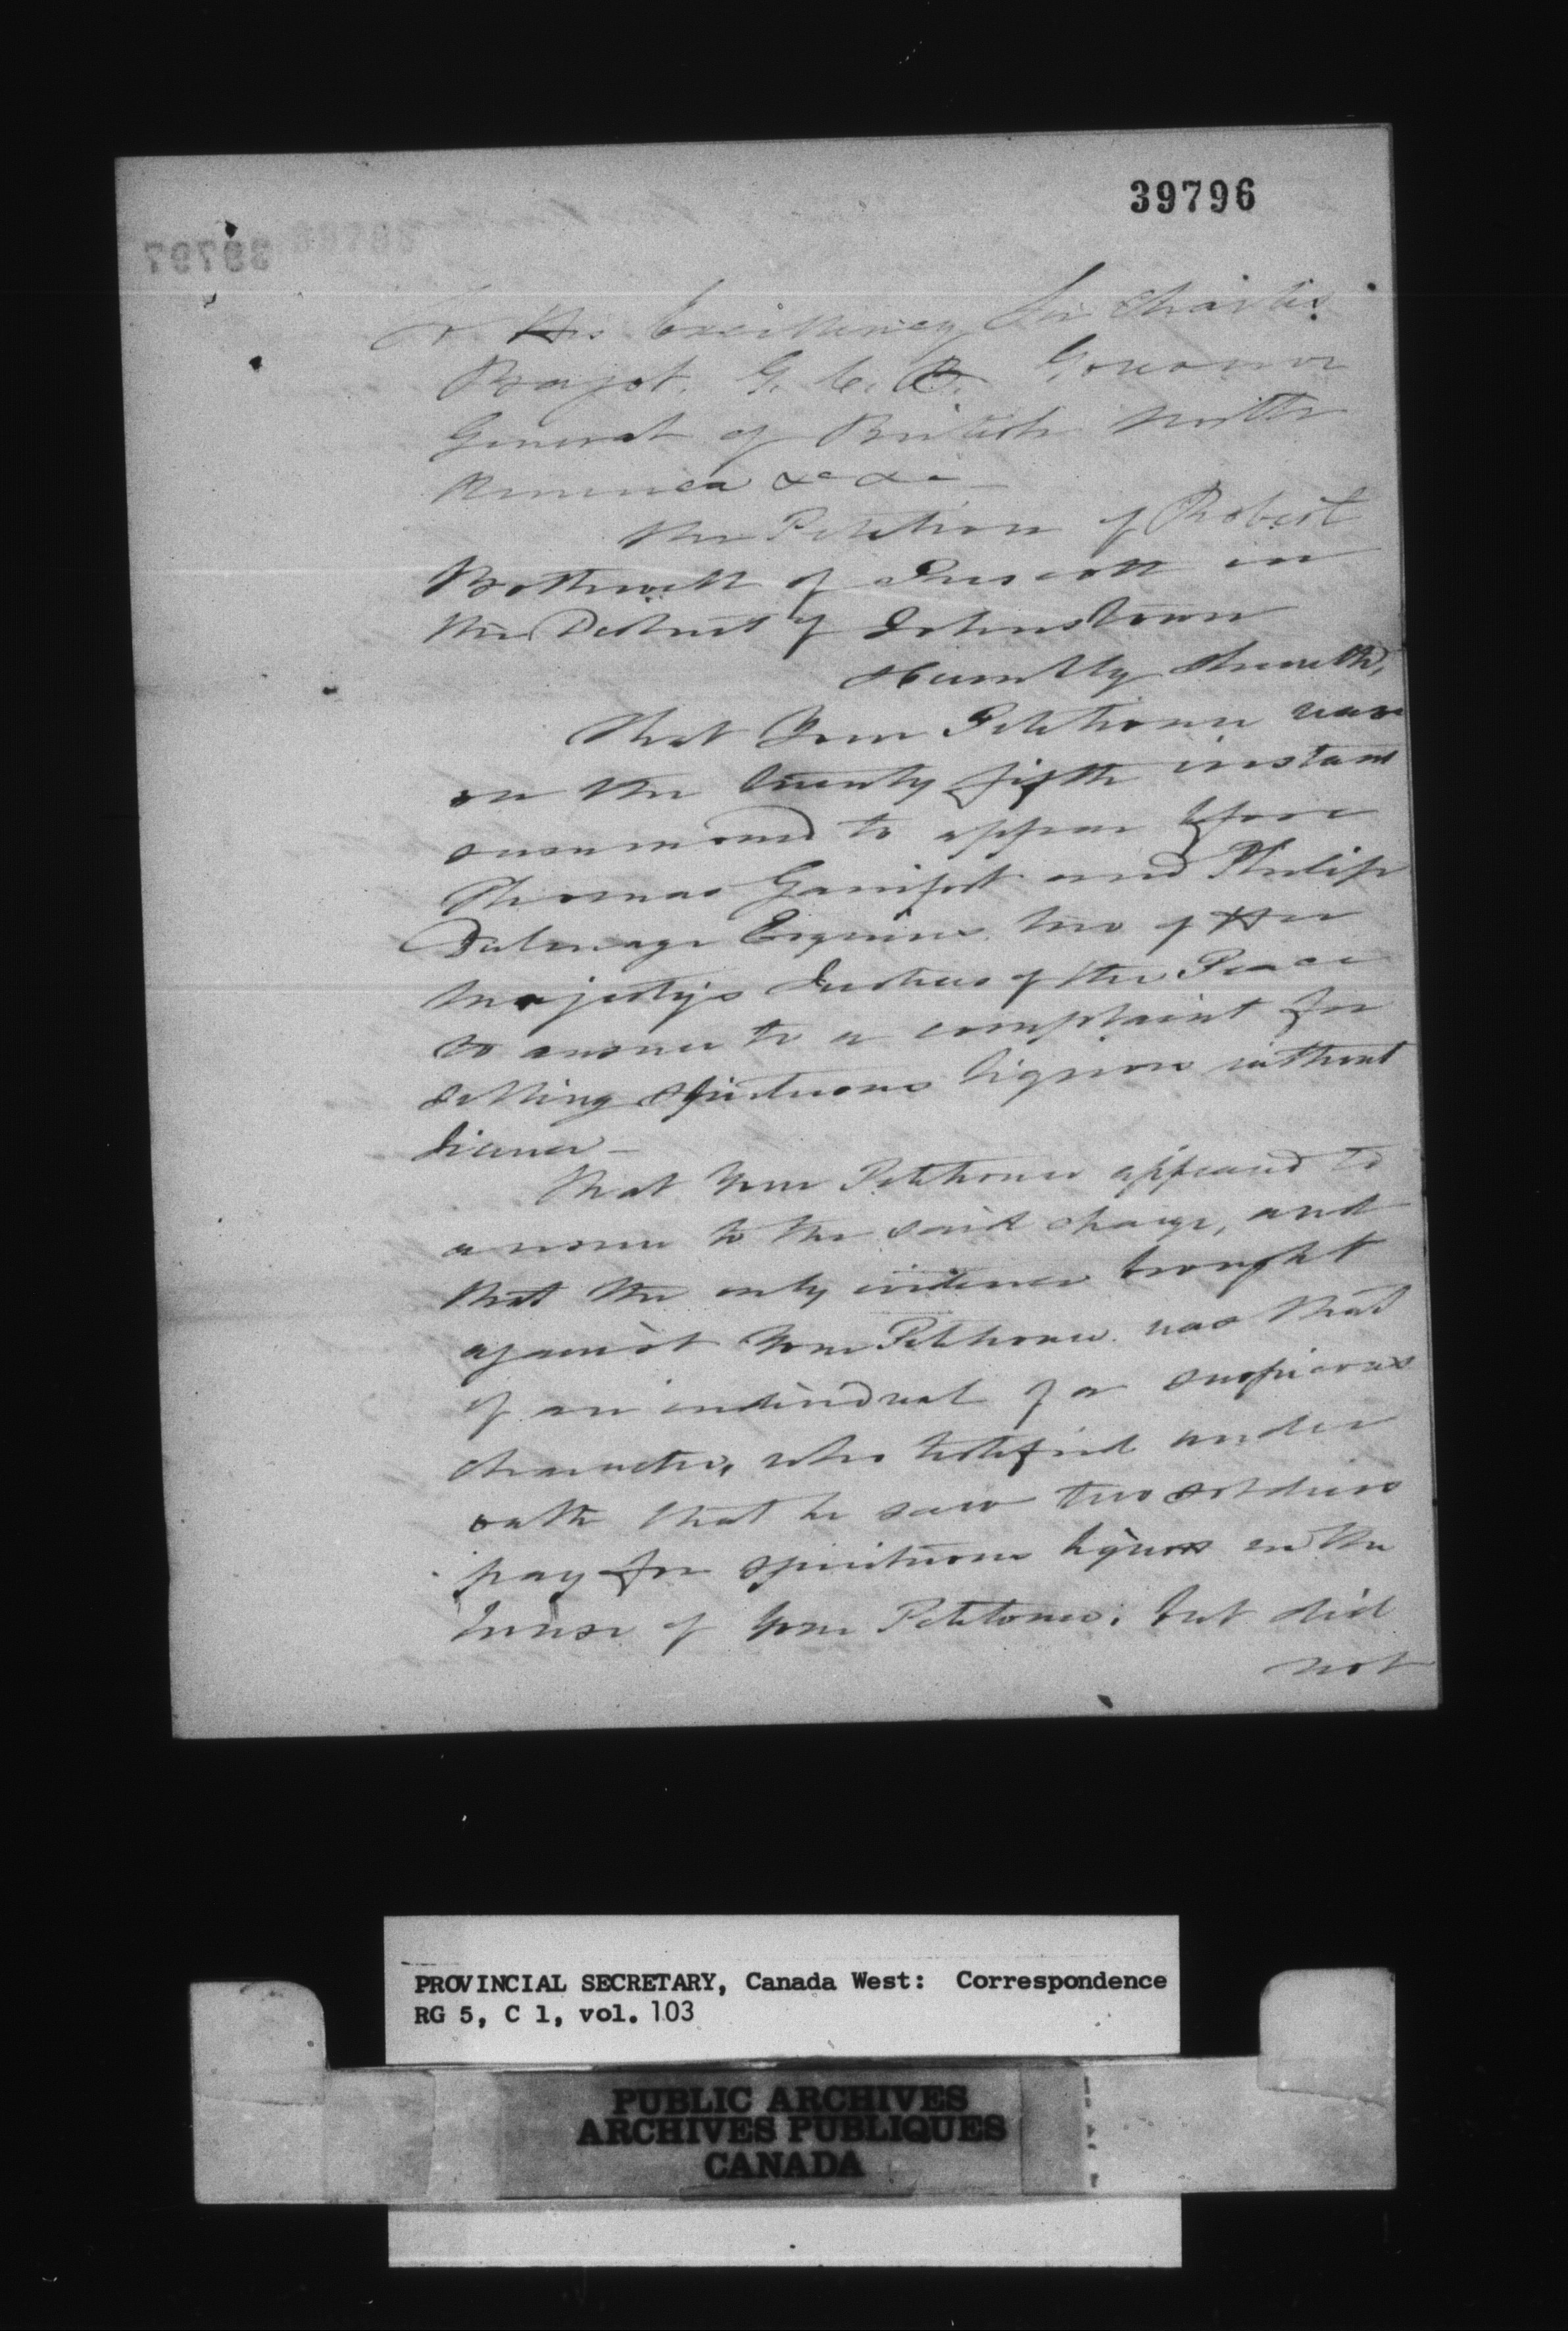 39796
To His Excellency Sir Charles
Bagot. G. C. B. Governor
General of British North
America &c &c
The Petition of Robert
Bothwell of Prescott in
the District of Johnstown
Humbly Sheweth,
That Your Petitioner was
on the twenty fifth instant
summoned to appear before
Thomas Gainfort and Philip
Dulmage Esquires two of Her
Majesty's Justices of the Peace
to answer to a complaint for
selling Spirituous liquors without
license -
That Your Petitioner appeared to
answer to the said charge, and
that the only evidence brought
against Your Petitioner was that
of an individual of a suspicious
character, who testified under
oath that he saw two soldiers
pay for spirituous liquors in the
house of Your Petitoner. but did
not
PROVINCIAL SECRETARY, Canada West: Correspondence
RG 5, C 1, vol. 103
PUBLIC ARCHIVES
ARCHIVES PUBLIQUES
CANADA